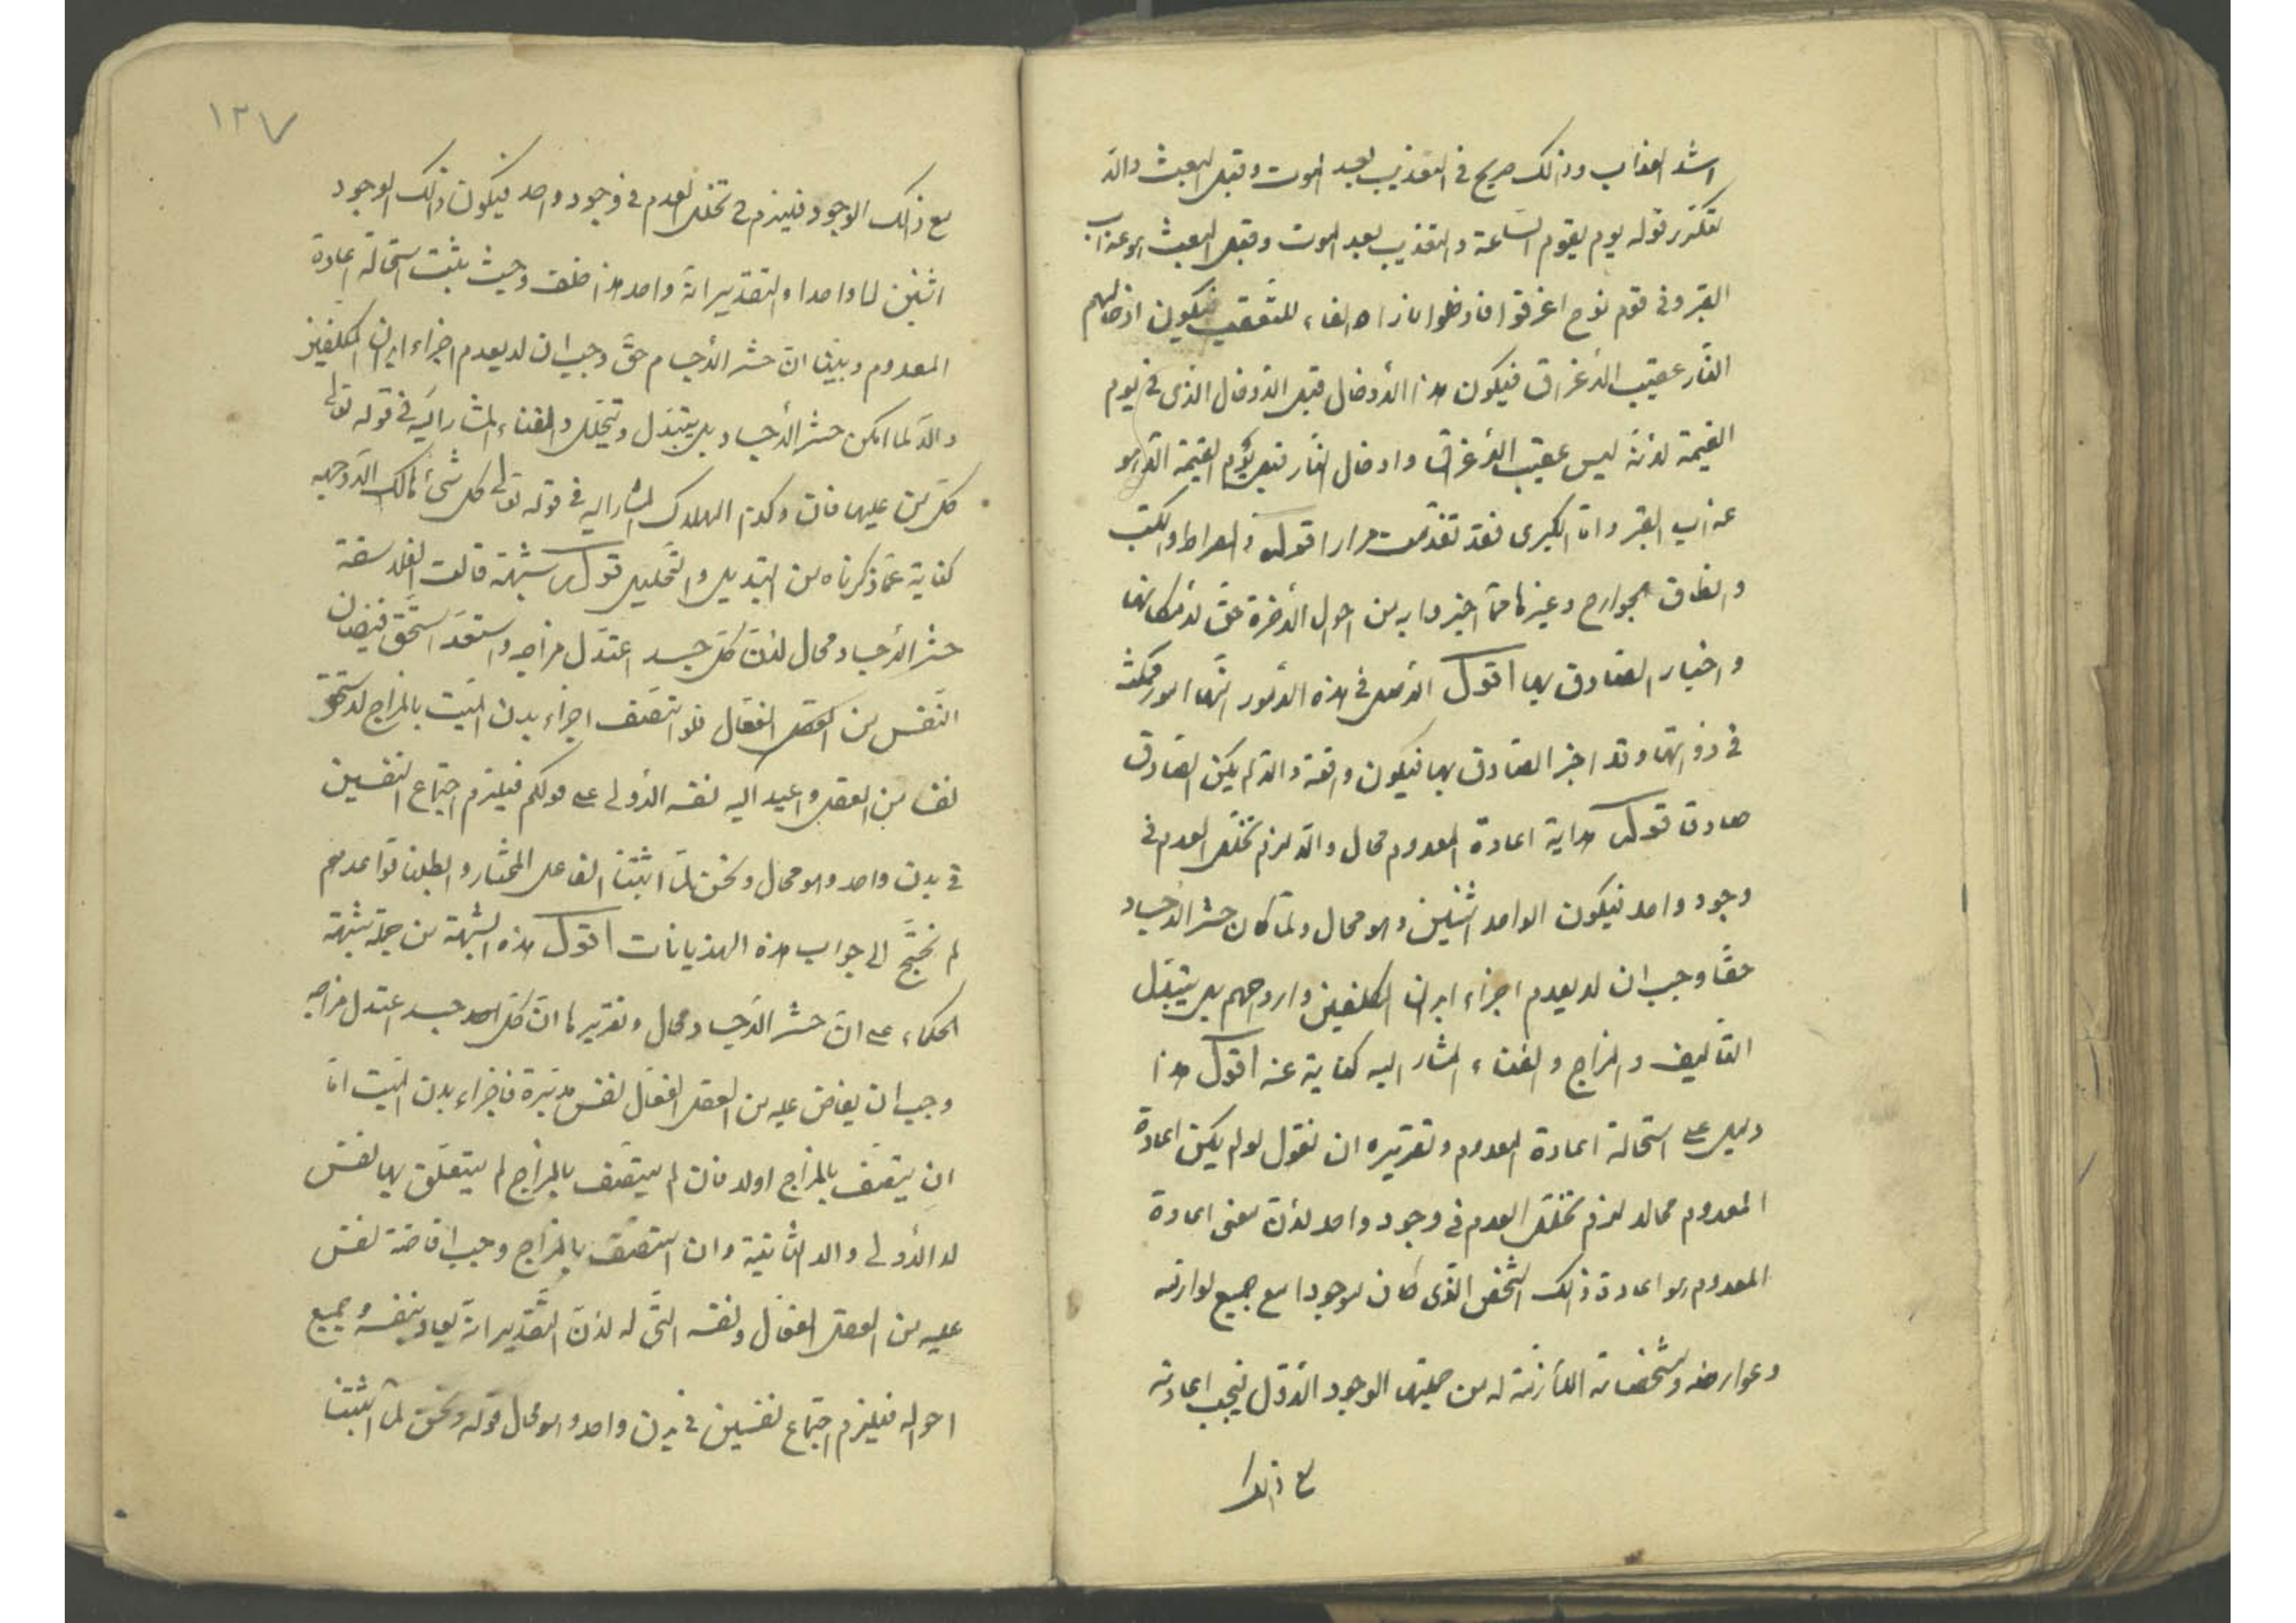 اشد العذاب وذلك صريح في التعذيب بعد الموت وقبل البعث والا
لتكرر قوله يوم يقوم الساعة والتعذيب بعد الموت وقبل البعث هو عذاب
القبر وفي قوم نوح اغرقوا فادخلوا نارا والفاء للتعقيب فيكون ادخالهم
النار عقيب الاغراق فيكون هذا الادخال قبل الادخال الذي في يوم
القيمة لانه ليس عقيب الاغراق وادخال النار قبل يوم القيمة الا هو
عذاب القبر واما الكبرى فقد تقدمت مرارا قوله والصراط والكتب
وانطاق الجوارح وغيرها مما اخبروا به من احوال الاخرة حق لامكانها
واخبار الصادق بها اقول الاصل في هذه الامور انها امور ممكنة
في ذواتها وقد اخبر الصادق بها فيكون واقعة والا لم يكن الصادق
صادق قوله هداية اعادة المعدوم محال والا لزم تخلل العدم في
وجود واحد فيكون الواحد اثنين وهو محال ولما كان حشر الاجساد
حقا وجب ان لا يعدم اجزاء ابدان المكلفين وارواحهم بل يتبدل
التأليف والمزاج والفناء المشار اليه كناية عنه اقول هذا
دليل على استحالة اعادة المعدوم وتقريره ان نقول لو لم يكن اعادة
المعدوم محالا لزم تخلل العدم في وجود واحد لان معنى اعادة
المعدوم هو اعادة ذلك الشخص الذي كان موجودا مع جميع لوازمه
وعوارضه ومشخصاته اللازمة له من جملتها الوجود الاول فيجب اعادته
مع ذلك
١٣٧
مع ذلك الوجود فيلزم ح تخلل العدم في وجود واحد فيكون ذلك الوجود
اثنين لا واحدا والتقدير انه واحد هذا خلف وحيث يثبت استحالة اعادة
المعدوم وبينا ان حشر الاجسام حق وجب ان لا يعدم اجزاء ابدان المكلفين
والا لما امكن حشر الاجساد بل يتبدل ويتحلل والفناء المشار اليه في قوله تعالى
كل من عليها فان وكذا الهلاك المشار اليه في قوله تعالى كل شئ هالك الا وجهه
كناية عما ذكرناه من التبديل والتحليل قوله شبهة قالت الفلاسفة
حشر الاجساد محال لان كل جسد اعتدل مزاجه واستعد استحق فيضان
النفس من العقل الفعال فلو اتصف اجزاء بدن الميت بالمزاج لاستحق
نفسا من العقل واعيد اليه نفسه الاولى على قولكم فيلزم اجتماع النفسين
في بدن واحد وهو محال ونحن لما اثبتنا الفاعل المختار وابطلنا قواعدهم
لم نحتج الى جواب هذه الهذيانات اقول هذه الشبهة من جملة شبهة
الحكماء على ان حشر الاجساد محال وتقريرها ان كل جسد اعتدل مزاجه
وجب ان يفاض عليه من العقل الفعال نفس مدبرة فاجزاء بدن الميت اما
ان يتصف بالمزاج اولا فان لم يتصف بالمزاج لم يتعلق بها نفس
لا الاولى ولا الثانية وان اتصف بالمزاج وجب افاضة نفس
عليه من العقل الفعال ونفسه التي له لان التقدير انه يعاد بنفسه وجميع
احواله فيلزم اجتماع نفسين في بدن واحد وهو محال قوله ونحن لما اثبتنا